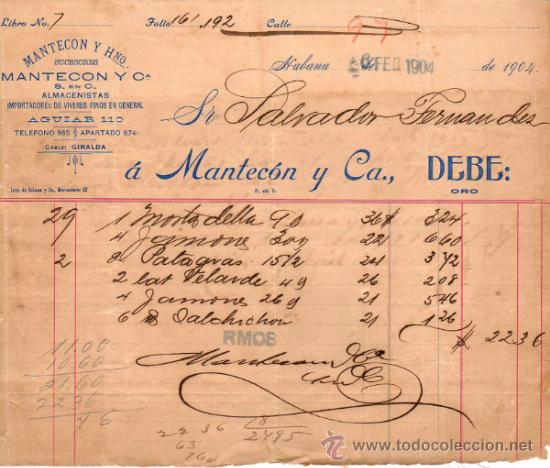 Libro No. 7 Folio 161, 192 Calle
97
MANTECON Y HNO.
SUCESORES
MANTECON Y Cª
S. EN C.
ALMACENISTAS
IMPORTADORES DE VIVERES FINOS EN GENERAL
AGUIAR 110
TELEFONO 985 APARTADO 674
CABLE: GIRALDA
Habana 6 FEB 1904 de 1904.
Sr Salvador Fernandes
á Mantecón y Ca., DEBE:
S. en C. ORO
29 1 Mortadella 90 36 $ 324
4 Jamones 300 22 660
2 2 Patagras 15 1/2 24 372
2 lat Velarde 49 26 208
4 Jamones 26 9 21 546
6 Salchichon 21 126
$ 22 36
RMOS
Mantecon y Ca
11.00
10.60
21.60
22 36
76
22 36
63
764
18
2495
www.todocoleccion.net